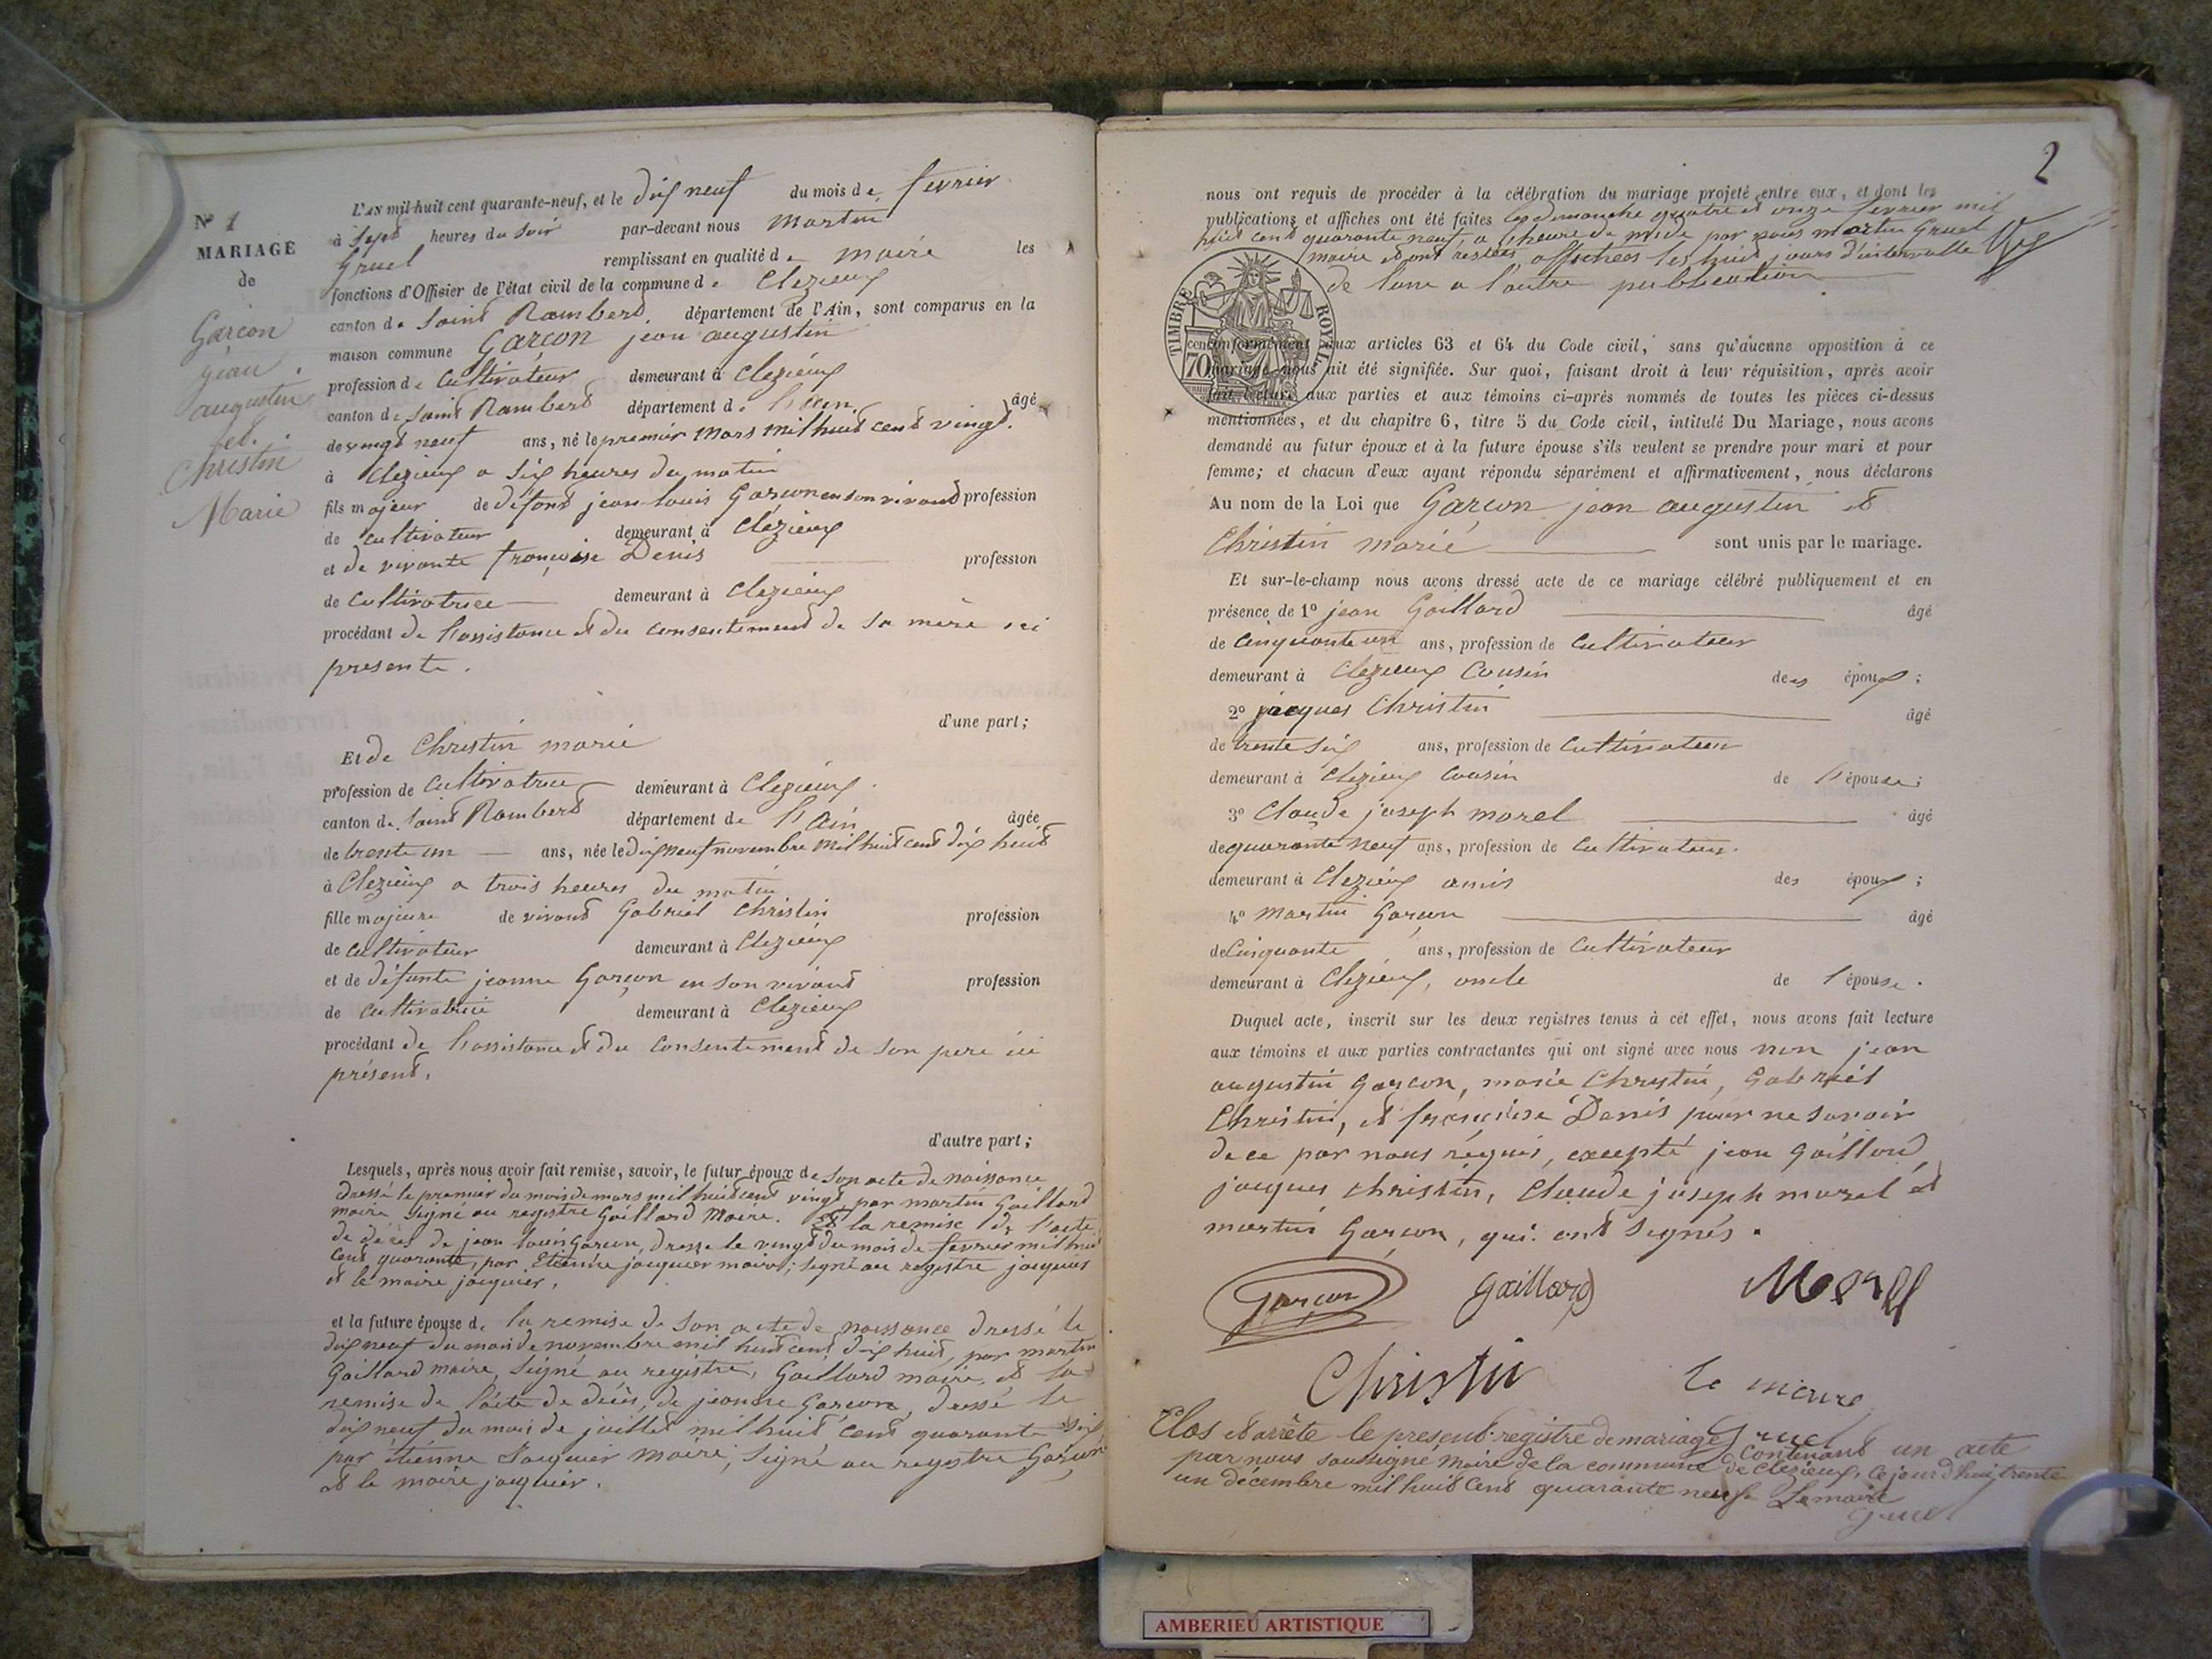 N° 1
MARIAGE
de
Garcon
jean
augustin
et
Christin
Marie
L'AN mil-huit cent quarante-neuf, et le dix neuf du mois de fevrier
à sept heures du soir par-devant nous Martin
Gruel remplissant en qualité de maire les
fonctions d'Officier de l'état civil de la commune de Clezieux
canton de Saint Rambert département de l'Ain, sont comparus en la
maison commune Garcon jean augustin
profession de Cultivateur demeurant à Clezieux
canton de Saint Rambert département de l'Ain âgé
de vingt neuf ans, né le premier Mars mil huit cent vingt.
à Clezieux a six heures du matin
fils majeur de défunt jean louis Garçon en son vivant profession
de cultivateur demeurant à Clézieux
et de vivante françoise Denis profession
de Cultivatrice demeurant à Clezieux
procédant de l'assistance et du consentement de sa mère ici
presente.
d'une part;
Et de Christin marie
profession de Cultivatrice demeurant à Clezieux.
canton de Saint Rambert département de l'Ain âgée
de trente un ans, née le dix neuf novembre mil huit cent dix huit
à Clezieux a trois heures du matin
fille majeure de vivant Gabriel Christin profession
de cultivateur demeurant à Clezieux
et de défunte jeanne Garçon en son vivant profession
de Cultivatrice demeurant à Clezieux
procédant de l'assistance et du Consentement de son pere ici
présent.
d'autre part;
Lesquels, après nous avoir fait remise, savoir, le futur époux de son acte de naissance
dressé le premier du mois de mars mil huit cent vingt par martin Gaillard
maire signé au registre Gaillard Maire. Et la remise de l'acte
de décès de jean louis Garcon, dresse le vingt du mois de fevrier mil huit
cent quarante, par Etienne jacquier maire; signé au registre jacquis
et le maire jacquier.
et la future épouse de la remise de son acte de naissance dressé le
dix neuf du mois de novembre mil huit cent dix huit, par martin
Gaillard maire, Signé au registre, Gaillard maire, et la
remise de l'acte de décès, de jeanne Garcon, dressé le
dix neuf du mois de juillet mil huit cent quarante six
par étienne Jacquier Maire; signé au registre Garçon
et le maire jacquier.
2
nous ont requis de procéder à la célébration du mariage projeté entre eux, et dont les
publications et affiches ont été faites les dimanche quatre et onze fevrier mil
huit cent quarante neuf, a l'heure de midi par nous martin Gruel
maire et ont restées affichées les huit jours d'intervalle
de l'une a l'autre publication
TIMBRE ROYAL
70 cent
conformément aux articles 63 et 64 du Code civil, sans qu'aucune opposition à ce
mariage nous ait été signifiée. Sur quoi, faisant droit à leur réquisition, après avoir
fait lecture aux parties et aux témoins ci-après nommés de toutes les pièces ci-dessus
mentionnées, et du chapitre 6, titre 5 du Code civil, intitulé Du Mariage, nous avons
demandé au futur époux et à la future épouse s'ils veulent se prendre pour mari et pour
femme; et chacun d'eux ayant répondu séparément et affirmativement, nous déclarons
Au nom de la Loi que Garçon jean augustin et
Christin marie sont unis par le mariage.
Et sur-le-champ nous avons dressé acte de ce mariage célébré publiquement et en
présence de 1° jean Gaillard âgé
de Cinquante un ans, profession de cultivateur
demeurant à Clezieux Cousin des époux;
2° jacques Christin âgé
de trente six ans, profession de Cultivateur
demeurant à Clezieux cousin de l'épouse;
3° Claude joseph morel âgé
de quarante neuf ans, profession de Cultivateur.
demeurant à Clezieux amis des époux;
4° Martin Garçon âgé
de Cinquante ans, profession de Cultivateur
demeurant à Clezieux, oncle de l'épouse.
Duquel acte, inscrit sur les deux registres tenus à cet effet, nous avons fait lecture
aux témoins et aux parties contractantes qui ont signé avec nous non jean
augustin Garçon, marie Christin, Gabriel
Christin, et françoise Denis pour ne savoir
de ce par nous réquis, excepté jean Gaillard
jacques christin, Claude joseph morel et
martin Garçon, qui ont signés.
Garcon Gaillard Morel
Christin Le maire
Gruel
Clos et arrête le present registre de mariage contenant un acte
par nous soussigné Maire de la commune de Clezieux, ce jourd'hui trente
un décembre mil huit cent quarante neuf. Le maire
Gruel
AMBERIEU ARTISTIQUE